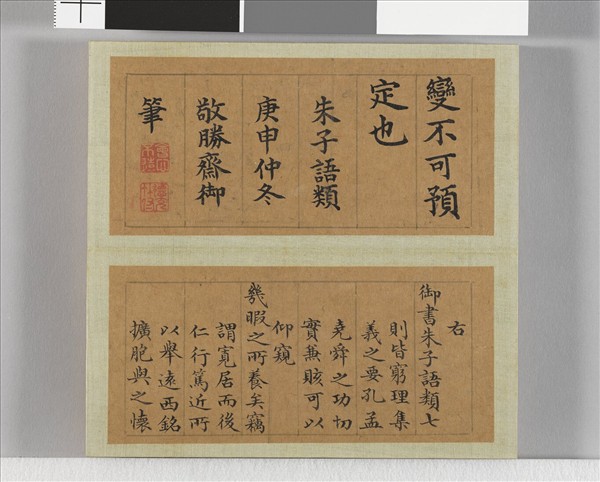 變不可預
定也
朱子語類
庚申仲冬
敬勝齋御
筆
右
御書朱子語類七
則皆窮理集
義之要孔孟
堯舜之功切
實兼賅可以
仰窺
幾暇之所養矣竊
謂寬居而後
仁行篤近所
以舉遠西銘
擴胞與之懷